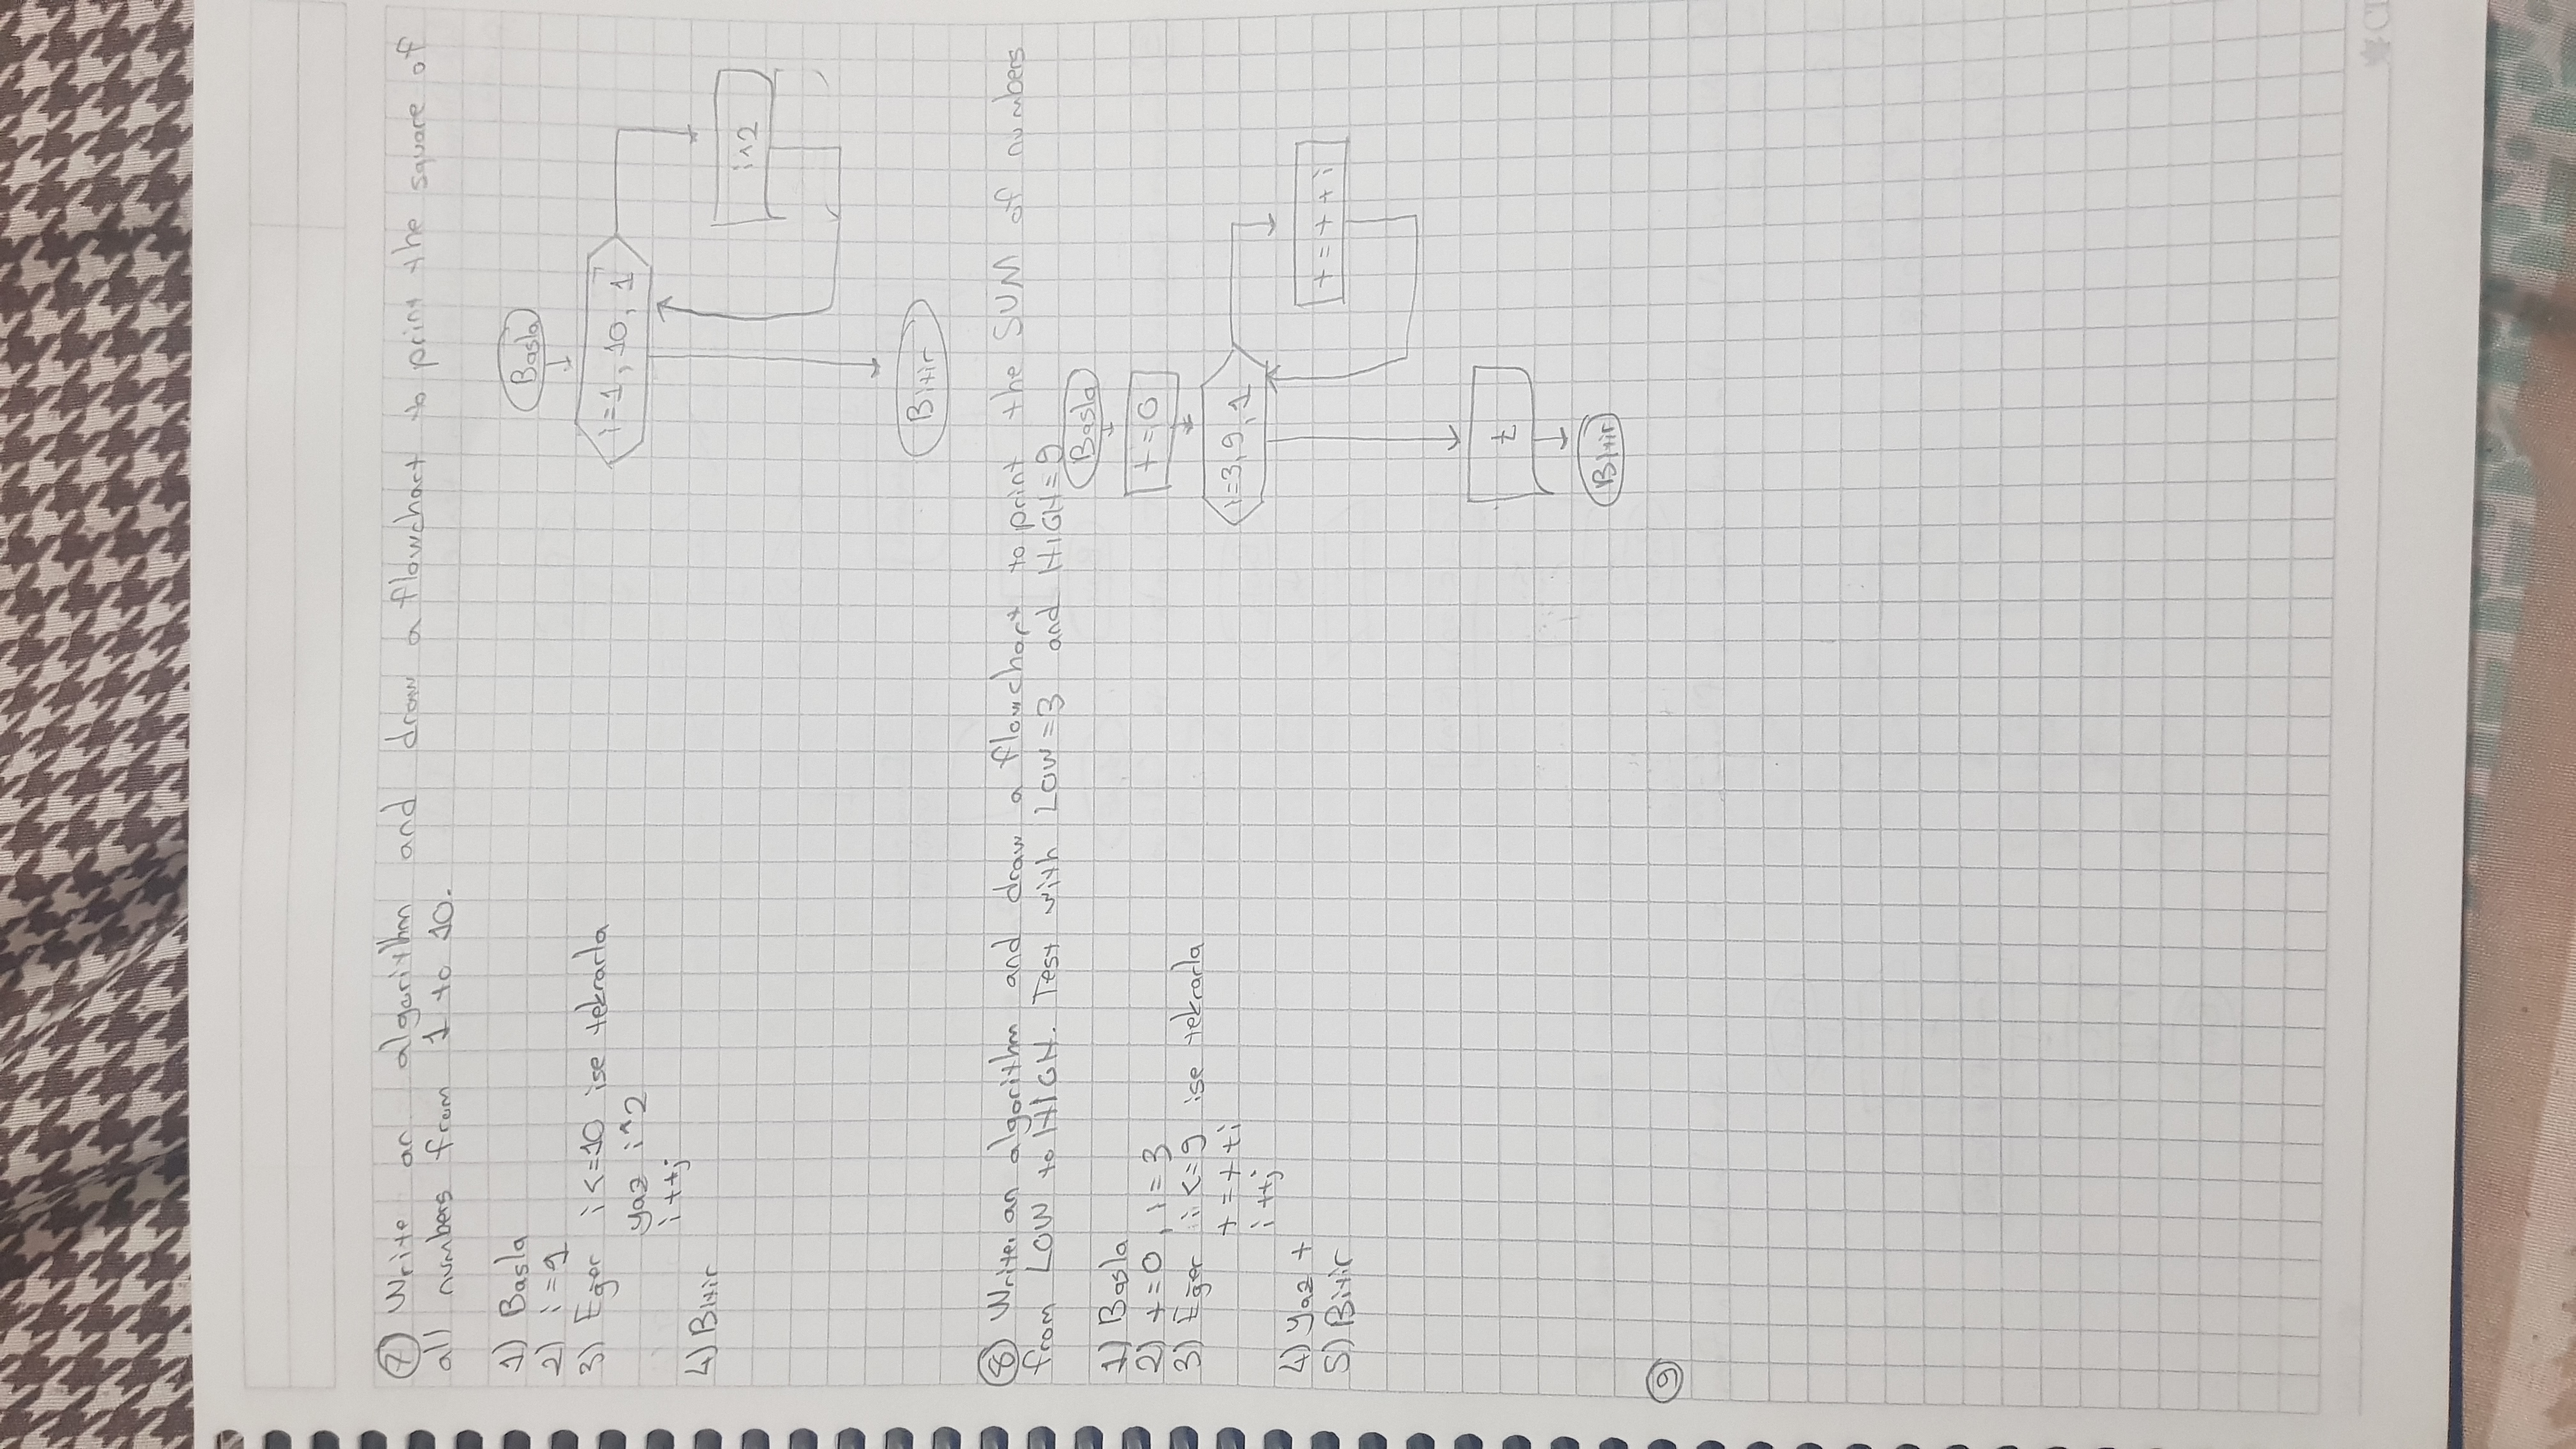 7 Write an algorithm and draw a flowchart to print the square of
all numbers from 1 to 10.
1) Basla
2) i=1
3) Eğer i<=10 ise tekrarla
yaz i^2
i++;
4) Bitir
Basla
i=1, 10, 1
i^2
Bitir
8 Write an algorithm and draw a flowchart to print the SUM of numbers
from LOW to HIGH. Test with LOW=3 and HIGH=9
1) Basla
2) t=0, i=3
3) Eğer i<=9 ise tekrarla
t=t+i
i++;
4) yaz t
5) Bitir
Basla
t=0
i=3,9,1
t=t+i
t
Bitir
9